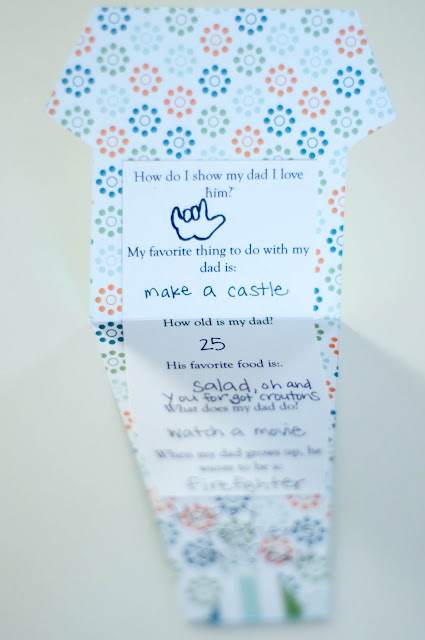 How do I show my dad I love
him?
My favorite thing to do with my
dad is:
make a castle
How old is my dad?
25
His favorite food is:.
salad, oh and
you forgot croutons
What does my dad do?
watch a movie
When my dad grows up, he
wants to be a:
firefighter